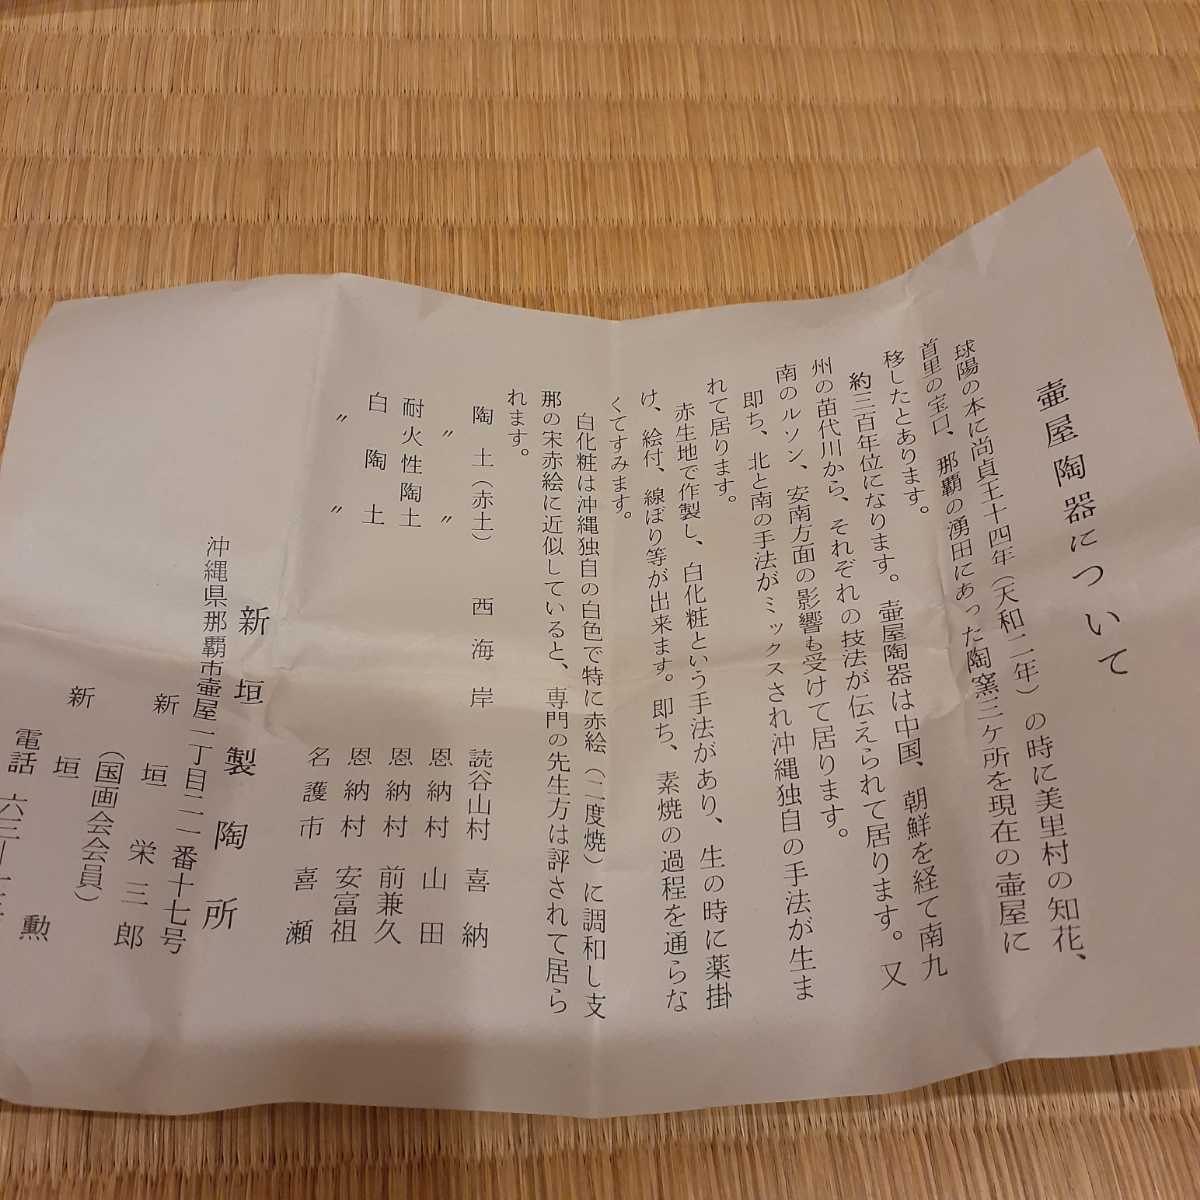 壷屋陶器について
球陽の本に尚貞王十四年（天和二年）の時に美里村の知花、
首里の宝口、那覇の湧田にあった陶窯三ケ所を現在の壷屋に
移したとあります。
約三百年位になります。壷屋陶器は中国、朝鮮を経て南九
州の苗代川から、それぞれの技法が伝えられて居ります。又
南のルソン、安南方面の影響も受けて居ります。
即ち、北と南の手法がミックスされ沖縄独自の手法が生ま
れて居ります。
赤生地で作製し、白化粧という手法があり、生の時に薬掛
け、絵付、線ぼり等が出来ます。即ち、素焼の過程を通らな
くてすみます。
白化粧は沖縄独自の白色で特に赤絵（二度焼）に調和し支
那の宋赤絵に近似していると、専門の先生方は評されて居ら
れます。
陶土（赤土）　西海岸　読谷山村　喜納
〃　〃　恩納村　山田
耐火性陶土　恩納村　前兼久
白陶土　恩納村　安富祖
〃　〃　名護市　喜瀬
新垣製陶所
沖縄県那覇市壷屋一丁目二一番十七号
新垣　栄三郎
（国画会会員）
新垣　勲
電話　六三―